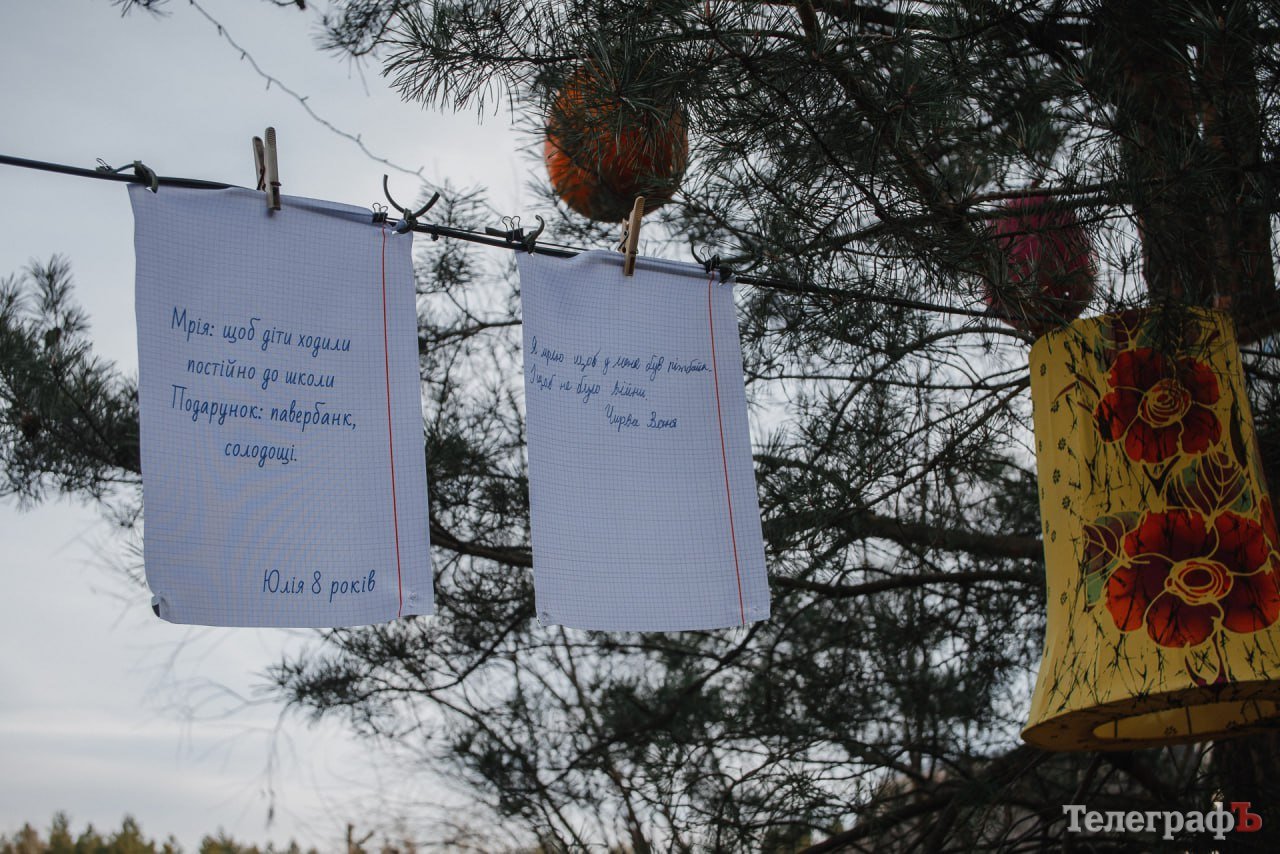 Мрія: щоб діти ходили
постійно до школи
Подарунок: павербанк,
солодощі.
Юлія 8 років
Я мрію щоб у мене був пітбайк
І щоб не було війни
Чирва Ваня
ТелеграфЪ